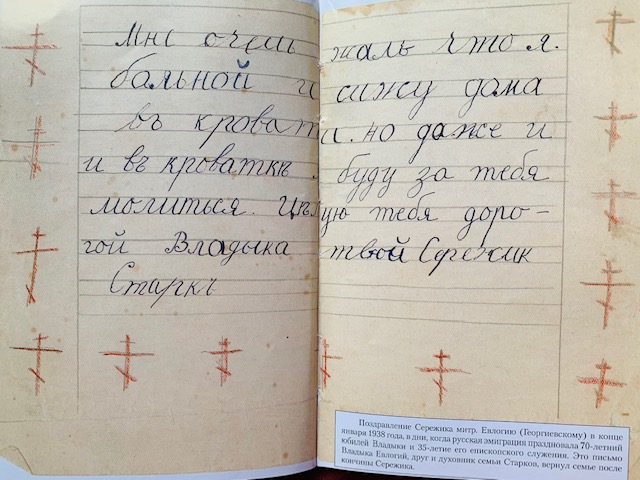 Мне очень жаль что я.
бальной и сижу дома
въ кровати. но даже и
и въ кроваткѣ. буду за тебя
молиться. Цѣлую тебя доро-
гой Владыка твой Сережик
Старкъ
Поздравление Сережика митр. Евлогию (Георгиевскому) в конце
января 1938 года, в дни, когда русская эмиграция праздновала 70-летний
юбилей Владыки и 35-летие его епископского служения. Это письмо
Владыка Евлогий, друг и духовник семьи Старков, вернул семье после
кончины Сережика.